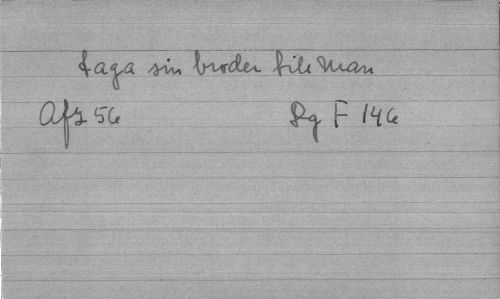 taga sin broder till man
Afz 56 Rg F 146